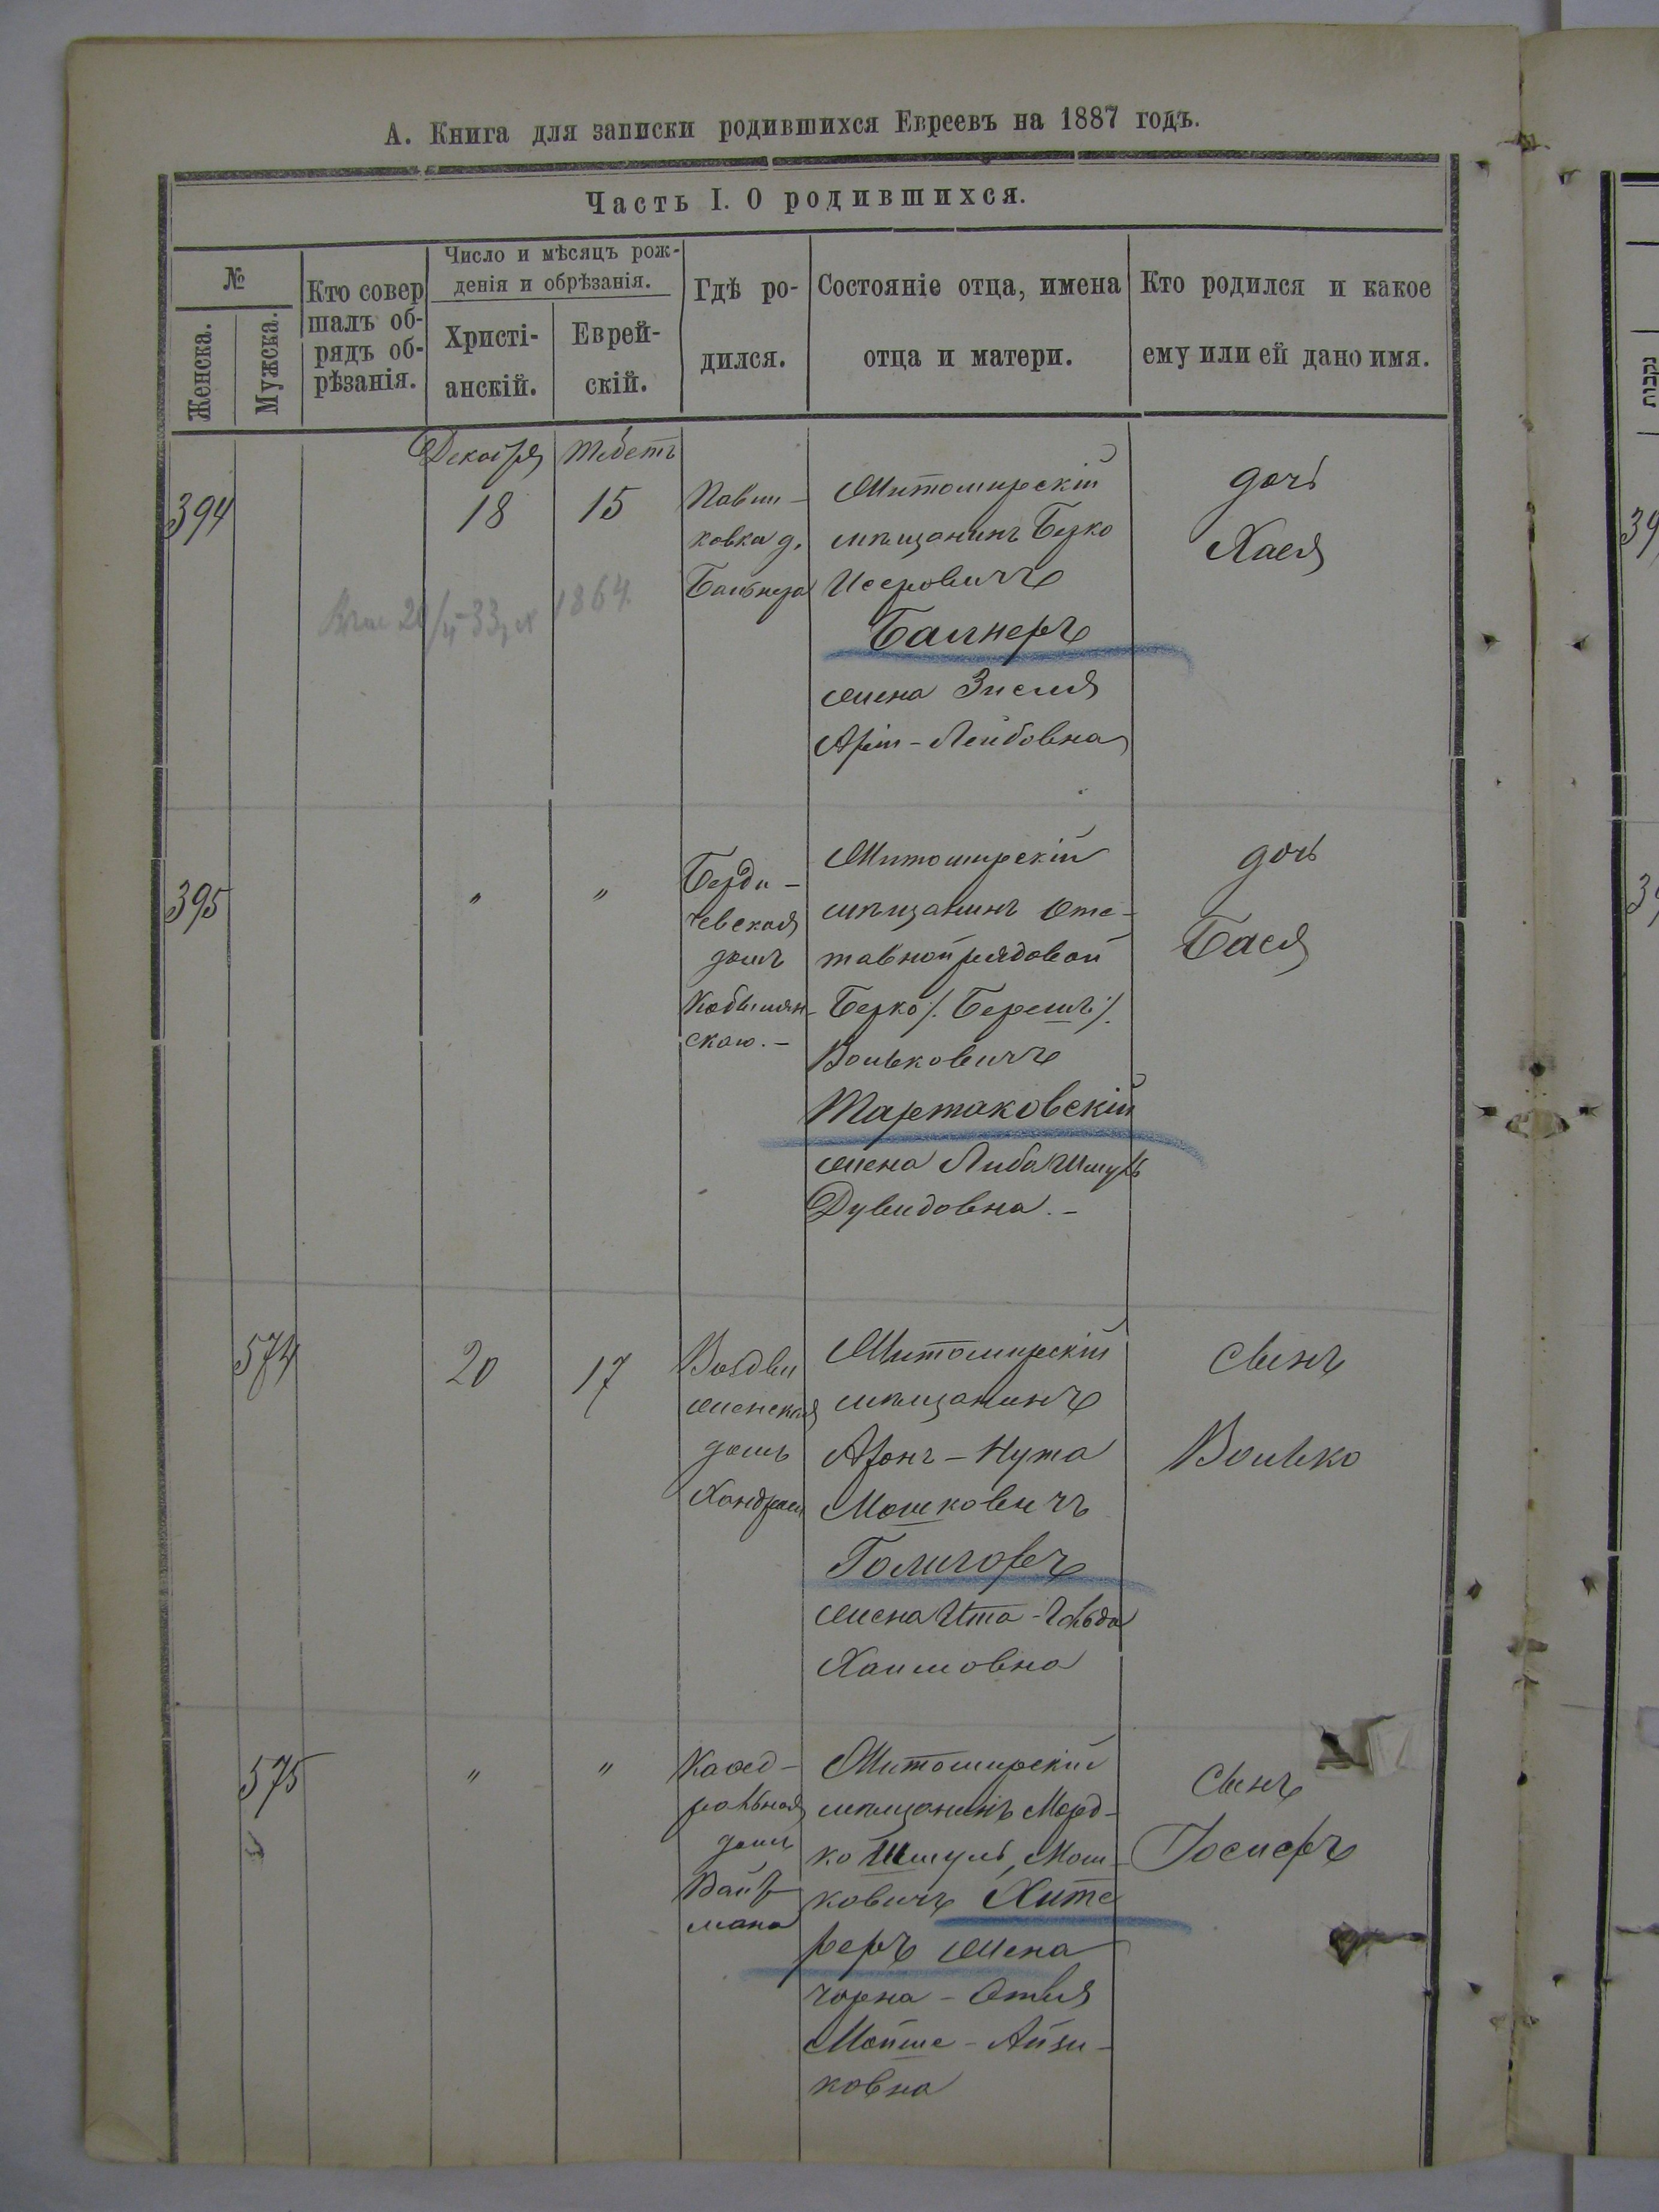 А. Книга для записки родившихся Евреевъ на 1887 годъ.
Часть I. О родившихся.
№
Женска.
Мужска.
Кто совер
шалъ об-
рядъ об-
рѣзанія.
Число и мѣсяцъ рож-
денія и обрѣзанія.
Христі-
анскій.
Еврей-
скій.
Гдѣ ро-
дился.
Состояніе отца, имена
отца и матери.
Кто родился и какое
ему или ей дано имя.
Декабря
Тебетъ
394
18
15
Павли-
ковка д.
Бальнера
Житомирскій
мѣщанинъ Берко
Исеровичъ
Балнеръ
жена Зисля
Арiи-Лейбовна
дочь
Хася
1864.
395
"
"
Берди-
чевская
домъ
Кобылян-
скаго.-
Житомирскій
мѣщанинъ Отс-
тавной рядовой
Берко /. Берешъ /.
Вольковичъ
Тартаковскій
жена Либа Шмуль
Дувидовна.-
дочь
Бася
574
20
17
Воздви
женская
домъ
Житомирскій
мѣщанинъ
Аронъ-Нута
Мошковичъ
Голигоръ
жена Ита-Гольда
Хаимовна
сынъ
Волько
575
"
"
Кафед-
ральная
домъ
Вайц-
мана
Житомирскій
мѣщанинъ Морд-
ко Шмуль, Мош-
ковичъ Хите
реръ жена
Чарна-Отля
Мойше-Айзи-
ковна
сынъ
Іосифъ
נקבות